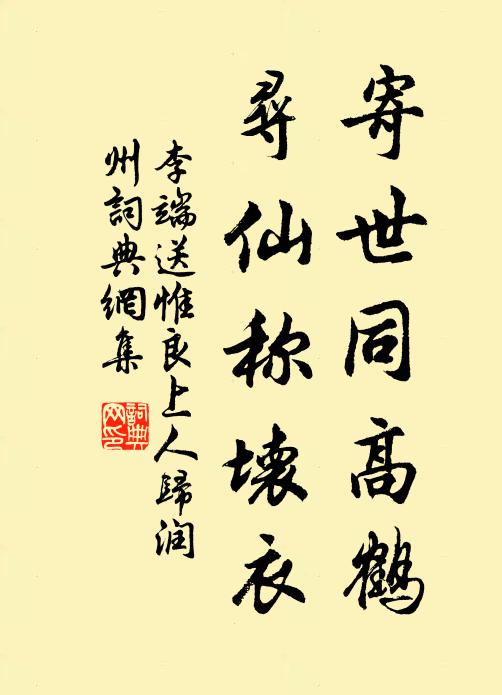 寄世同高鹤
寻仙称坏衣
李端送惟良上人歸润
州詞典網集
詞典
网印